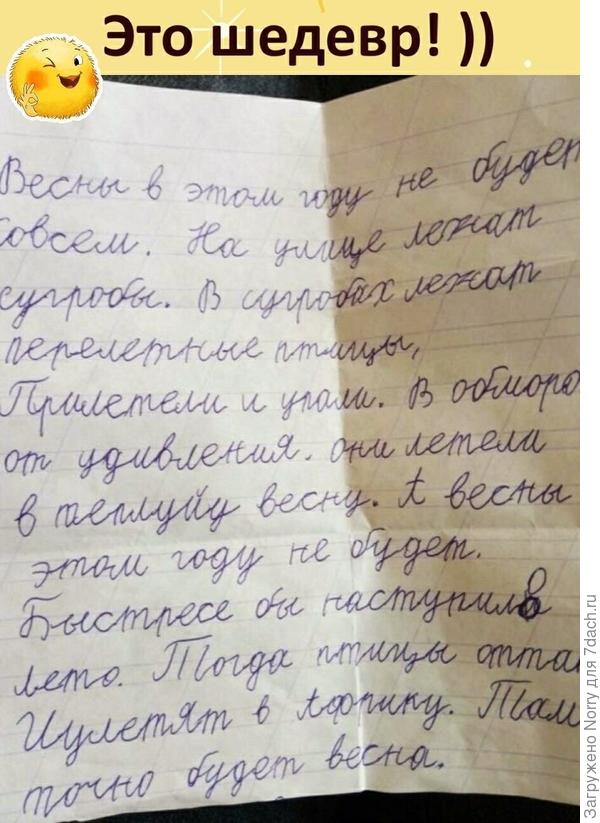 Это шедевр! ))
Весны в этом году не будет
совсем. На улице лежат
сугробы. В сугробах лежат
перелетные птицы,
Прилетели и упали. В обморо
от удивления. они летели
в теплуйу весну. А весны
этом году не будет.
Быстресе бы наступило
лето. Тогда птицы оттаи
Иулетят в Африку. Там
точно будет весна.
Загружено Norry для 7dach.ru